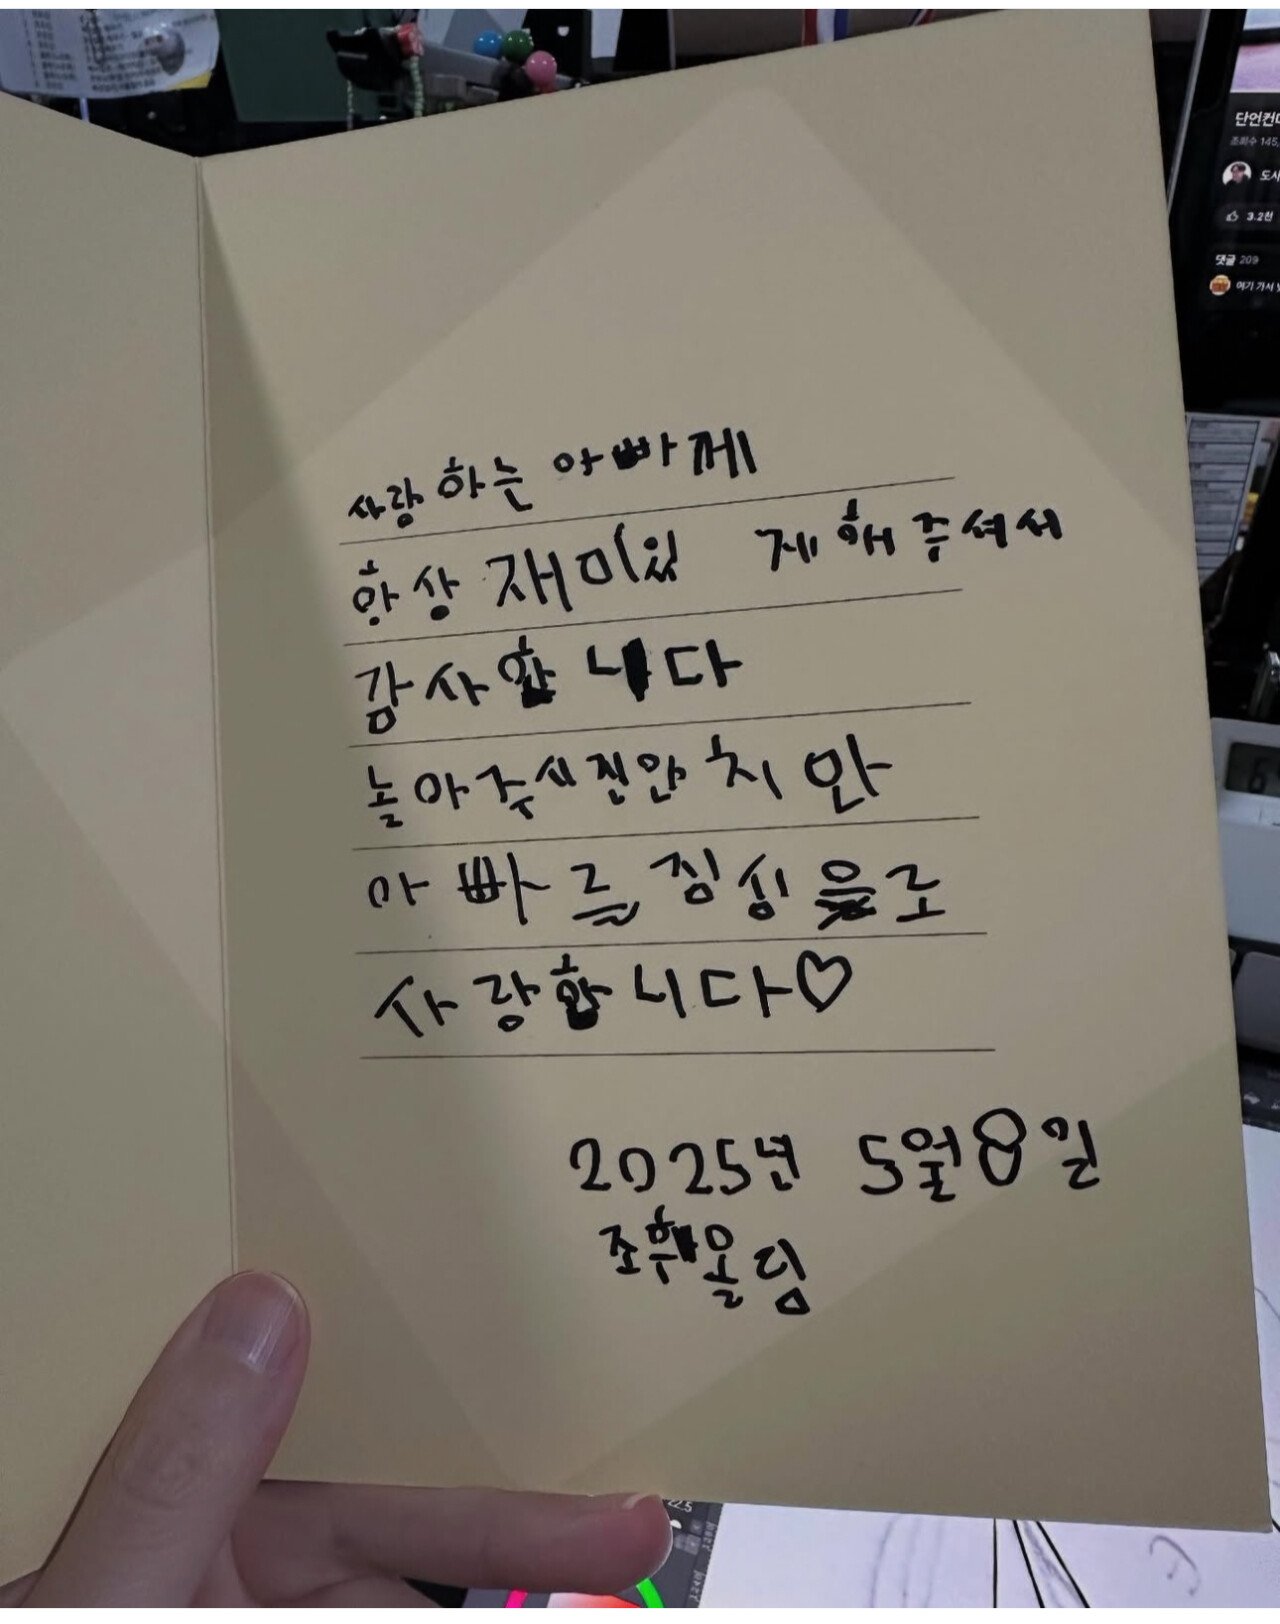 사랑하는 아빠께
항상 재미있게 해주셔서
감사합니다
놀아주시진안치안
아빠를 징싱을로
사랑합니다♡
2025년 5월8일
조훼올림
단언컨
조회수 145,
도사
3.2천
댓글 209
여기 가서